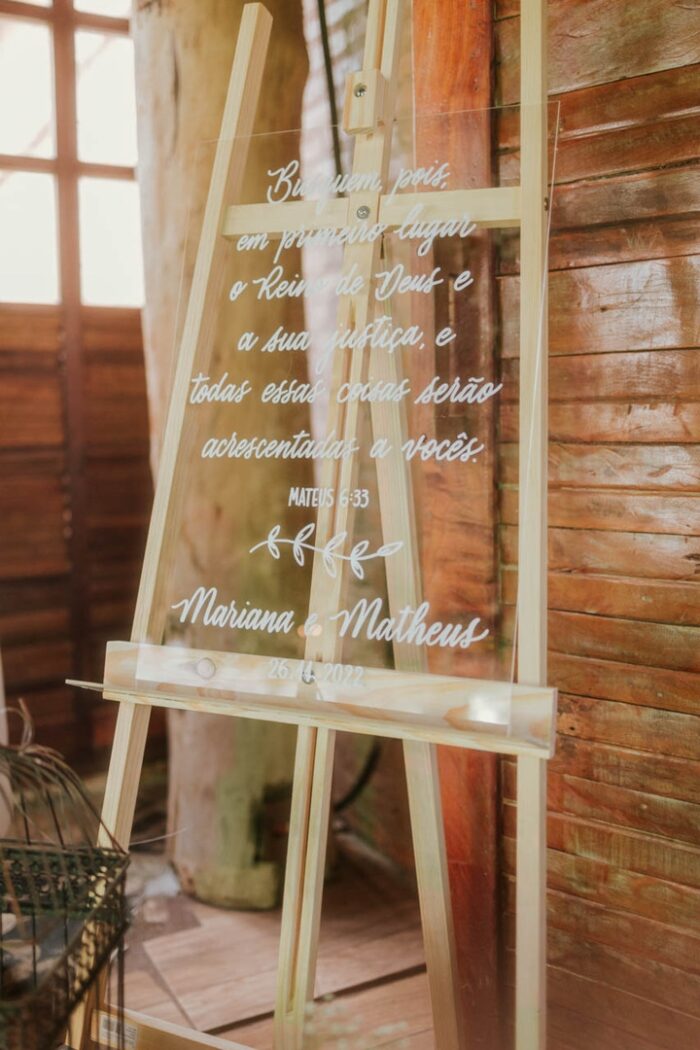 Busquem, pois,
em primeiro lugar
o Reino de Deus e
a sua justiça, e
todas essas coisas serão
acrescentadas a vocês.
MATEUS 6:33
Mariana e Matheus
26.11.2022